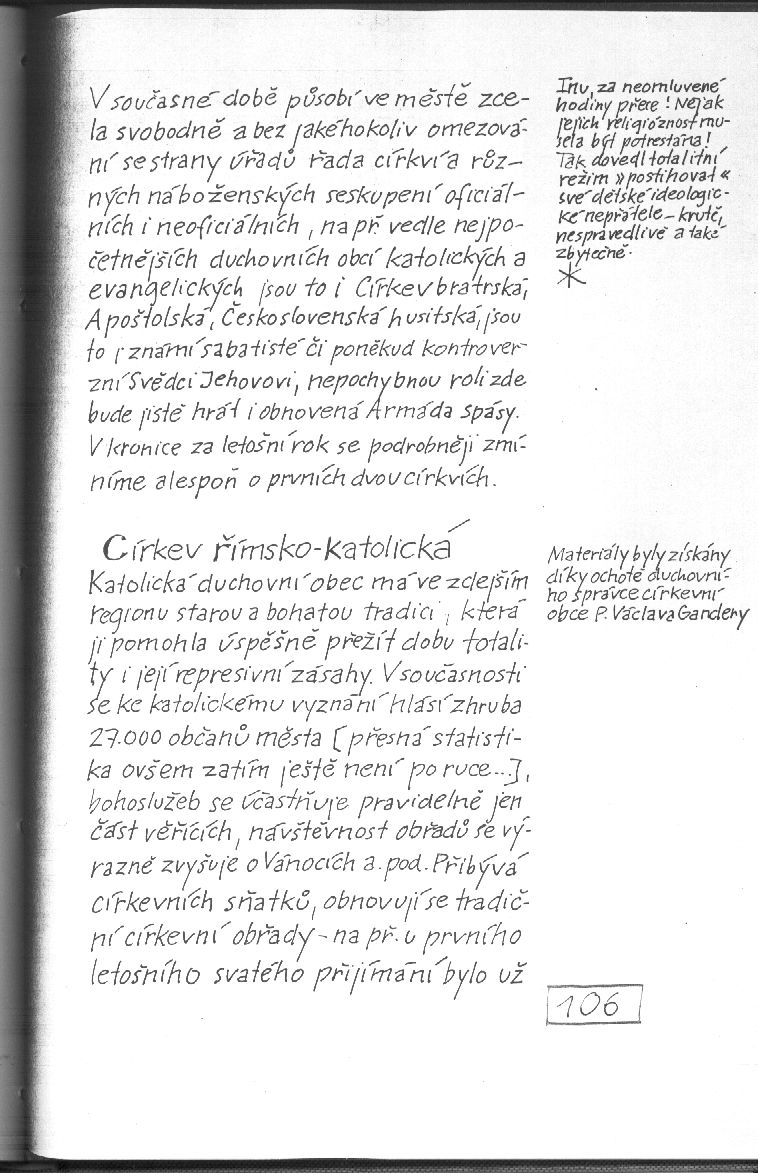 V současné době působí ve městě zce-
la svobodně a bez jakéhokoliv omezová-
ní se strany úřadů řada církví a růz-
ných náboženských seskupení oficiál-
ních i neoficiálních, na př. vedle nejpo-
četnějších duchovních obcí katolických a
evangelických jsou to i Církev bratrská,
Apoštolská, Československá husitská, jsou
to i známí sabatisté či poněkud kontrover-
zní Svědci Jehovovi, nepochybnou roli zde
bude jistě hrát i obnovená Armáda spásy.
V kronice za letošní rok se podrobněji zmí-
níme alespoň o prvních dvou církvích.
Církev římsko-katolická
Katolická duchovní obec má ve zdejším
regionu starou a bohatou tradici, která
jí pomohla úspěšně přežít dobu totali-
ty i její represivní zásahy. V současnosti
se ke katolickému vyznání hlásí zhruba
27.000 občanů města [přesná statisti-
ka ovšem zatím ještě není po ruce...],
bohoslužeb se účastňuje pravidelně jen
část věřících, návštěvnost obřadů se vý-
razně zvyšuje o Vánocích a. pod. Přibývá
církevních sňatků, obnovují se tradič-
ní církevní obřady - na př. u prvního
letošního svatého přijímání bylo už
Inu, za neomluvené
hodiny přece! Nějak
jejich religióznost mu-
sela být potrestána!
Tak dovedl totalitní
režim »postihovat«
své dětské ideologic-
ké nepřátele - krutě,
nespravedlivě a také
zbytečně.
Materiály byly získány
díky ochotě duchovní-
ho správce církevní
obce P. Václava Gandery
106